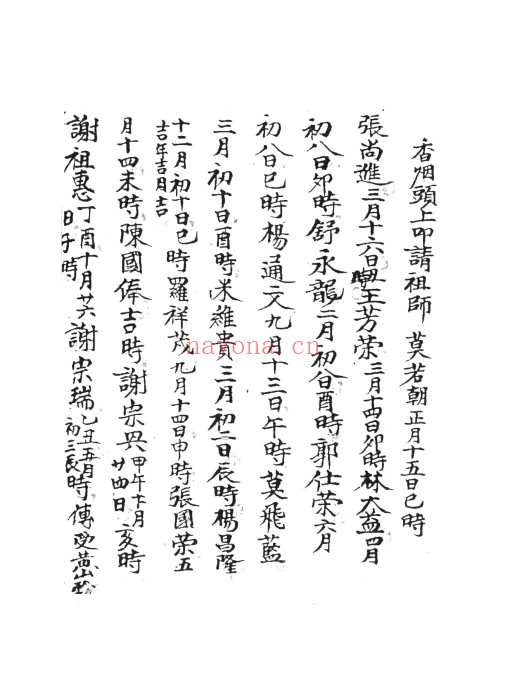 香烟頭上叩請祖師 莫若朝正月十五日巳時
張尚進三月十六日 王芳荣三月十四日夘時林大益四月
初八日夘時舒永龍二月初八日酉時郭仕荣六月
初八日巳時楊通文九月十三日午時莫飛藍
三月初十日酉時米 貴三月初二日辰時楊昌隆
十二月初十日巳時羅祥 九月十四日申時張國荣五
吉年吉月吉
月十四未時陳國俸吉時謝宗興甲午 月
廿四日亥時
謝祖惠丁酉十月廿六
日子時
謝宗瑞乙丑五月
初三辰時傳受
nayona.cn